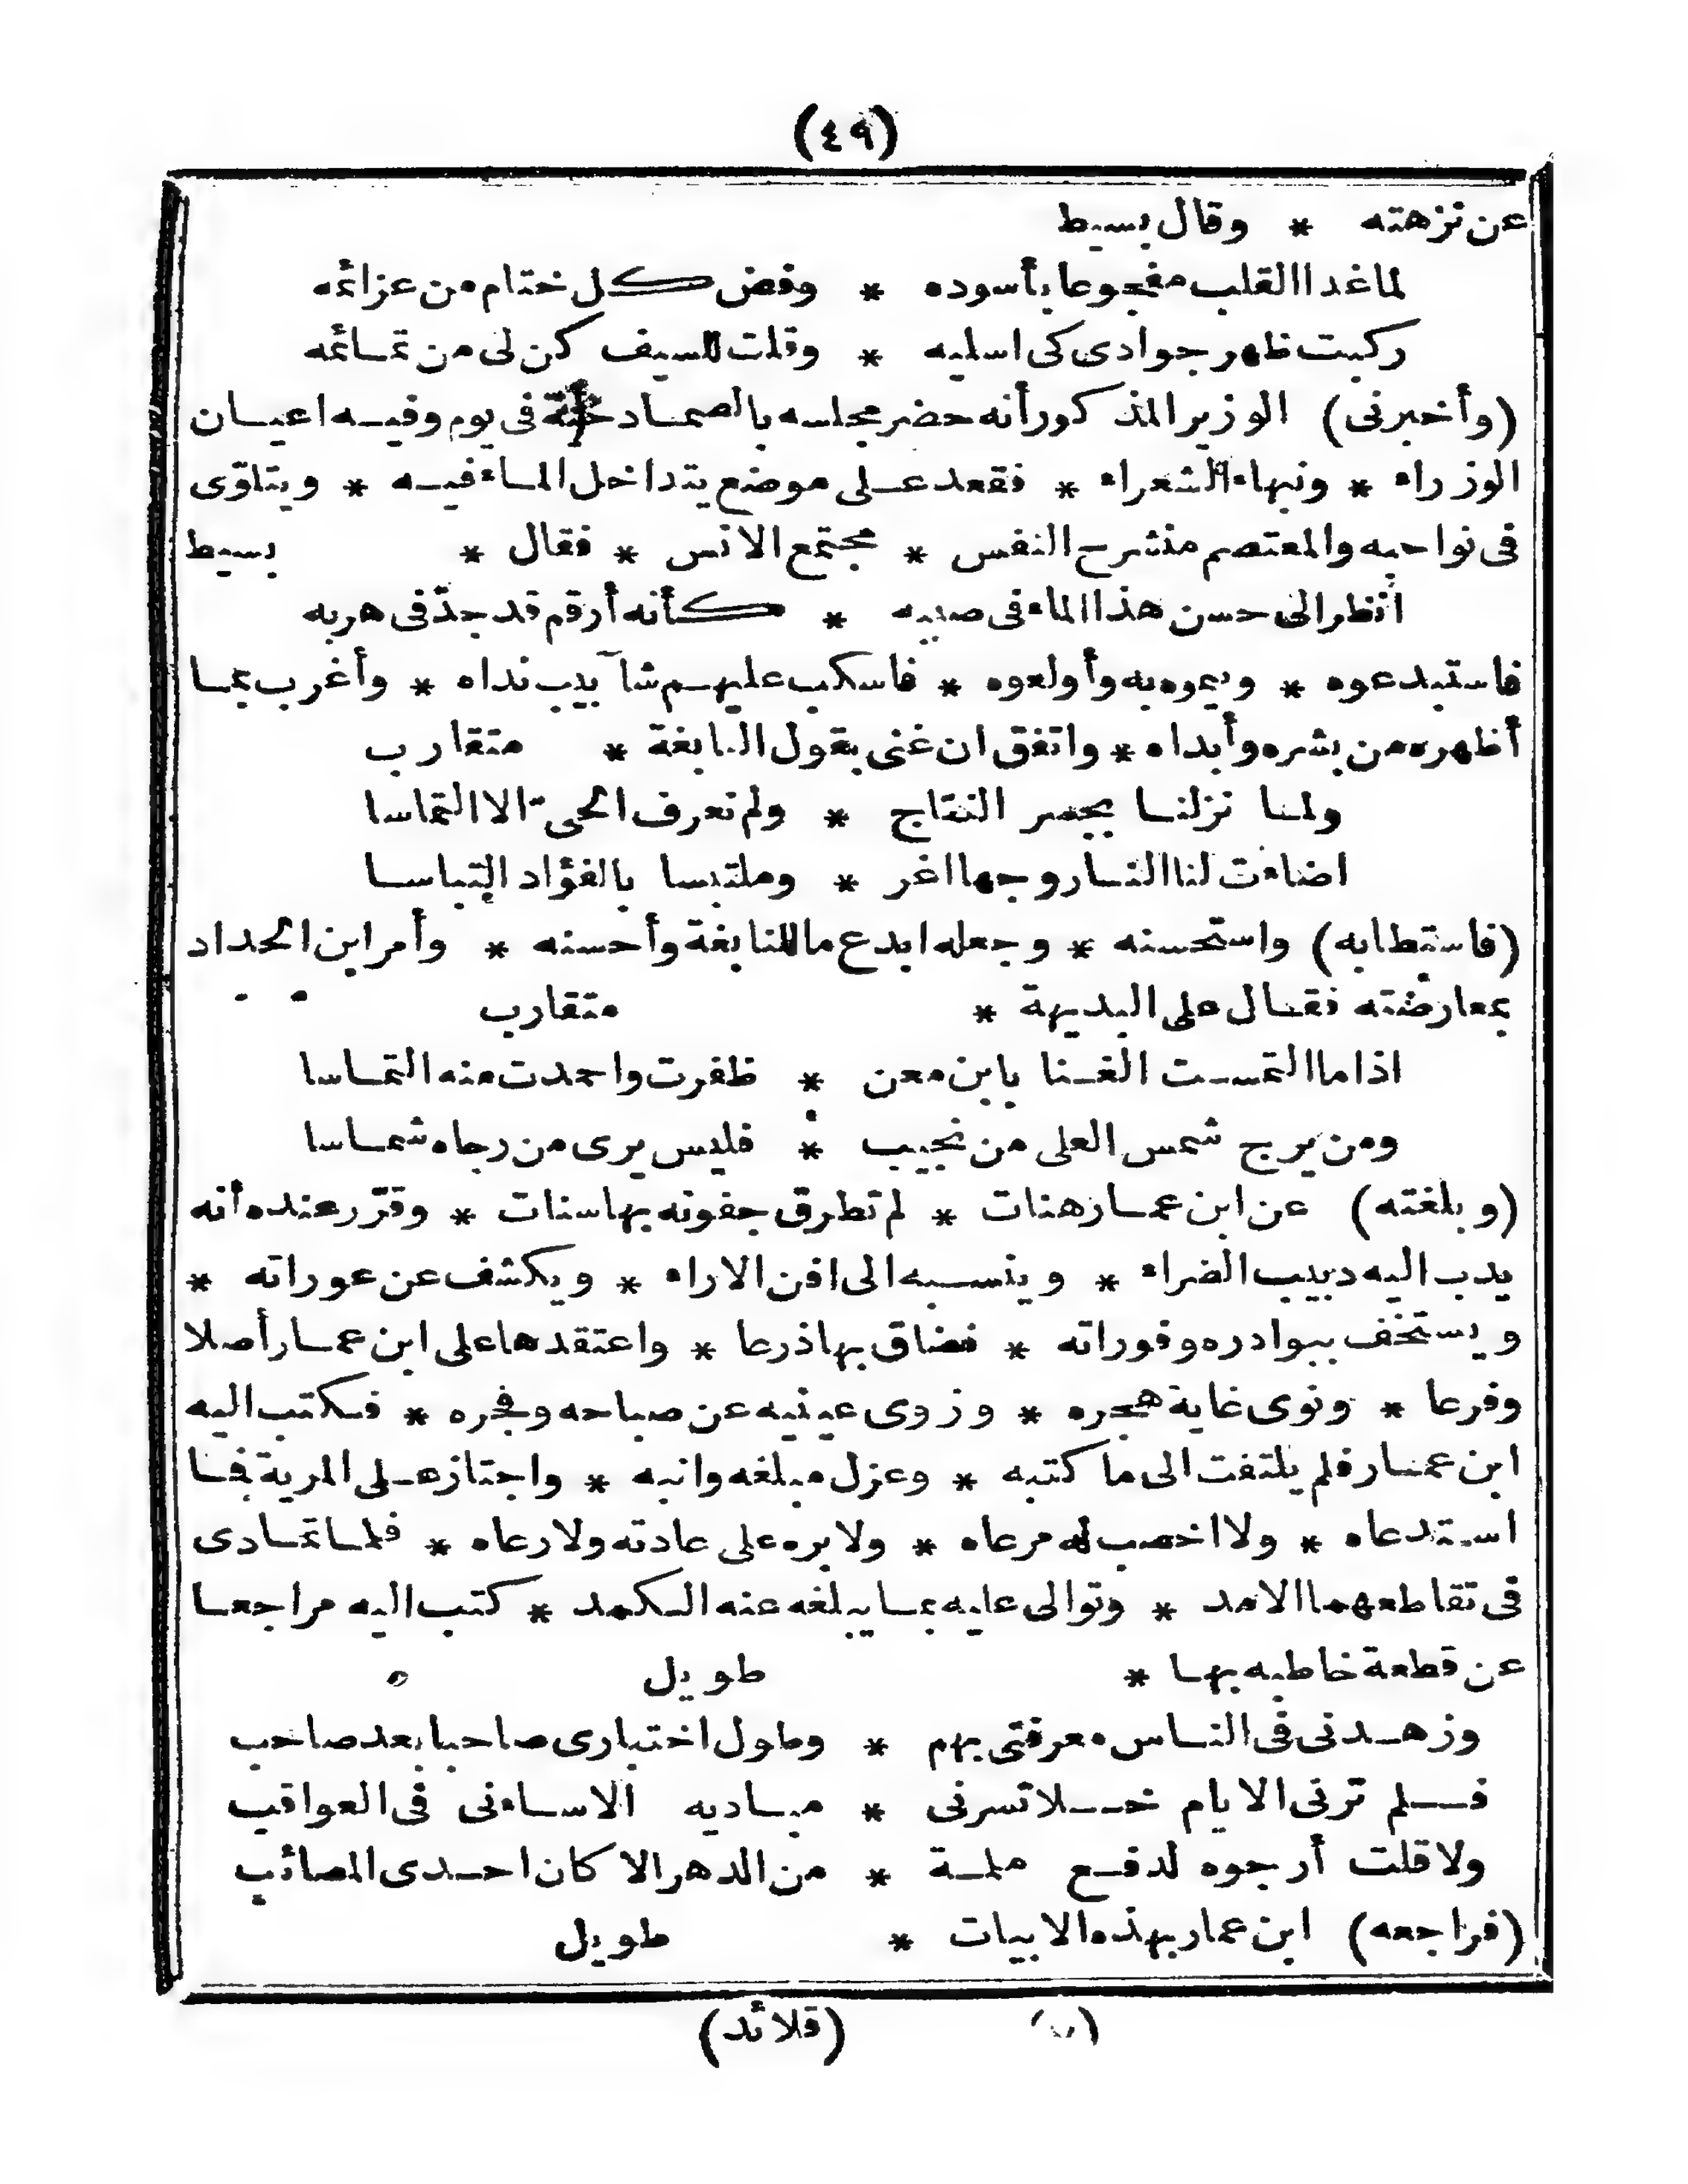 (٤٩)
عن نزهته * وقال بسيط
لما غدا القلب مفجوعا بأسوده * وفض كل ختام من عزائمه
ركبت ظهر جوادى كى اسليه * وقلت للسيف كن لى من تمائمه
(وأخبرنى) الوزير المذكور أنه حضر مجلسه بالصمادحية فى يوم وفيه اعيان
الوزراء * ونبهاء الشعراء * فقعد على موضع يتداخل الماء فيه * ويتلوّى
فى نواحيه والمعتصم منشرح النفس * مجتمع الانس * فقال * بسيط
انظر الى حسن هذا الماء فى صببه * كأنه أرقم قد جدّ فى هربه
فاستبدعوه * وتيموه به وأولعوه * فاسكب عليهم شآبيب نداه * وأغرب بما
أظهره من بشره وأبداه * واتفق ان غنى بقول النابغة * متقارب
ولما نزلنا بجسر النتاج * ولم نعرف الحىّ الا التماسا
اضاءت لنا النار وجها اغر * وملتبسا بالفؤاد التباسا
(فاستطابه) واستحسنه * وجعله ابدع ما للنابغة وأحسنه * وأمر ابن الحداد
بمعارضته فقال على البديهة * متقارب
اذا ما التمست الغنا بابن معن * ظفرت واحمدت منه التماسا
ومن يرج شمس العلى من نجيب * فليس يرى من رجاه شماسا
(وبلغته) عن ابن عمار هنات * لم تطرق جفونه بها سنات * وقرّر عنده أنه
يدب اليه دبيب الضراء * وينسبه الى افن الاراء * ويكشف عن عوراته *
ويستخف ببوادره وفوراته * فضاق بها ذرعا * واعتقدها على ابن عمار أصلا
وفرعا * ونوى غاية هجره * وزوى عينيه عن صباحه وفجره * فكتب اليه
ابن عمار فلم يلتفت الى ما كتبه * وعزل مبلغه وانبه * واجتاز على المرية فما
استدعاه * ولا اخصب له مرعاه * ولا بره على عادته ولا رعاه * فلما تمادى
فى تقاطعهما الامد * وتوالى عليه بما يبلغه عنه الكمد * كتب اليه مراجعا
عن قطعة خاطبه بها * طويل
وزهدنى فى الناس معرفتى بهم * وطول اختبارى صاحبا بعد صاحب
فلم ترنى الايام خلا تسرنى * مباديه الا ساءنى فى العواقب
ولا قلت أرجوه لدفع ملمة * من الدهر الا كان احدى المصائب
(فراجعه) ابن عمار بهذه الابيات * طويل
(قلائد)